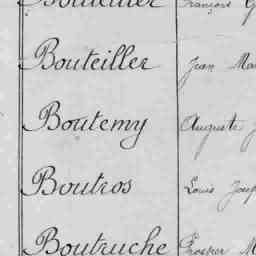 Bouteiller François
Bouteiller Jean
Boutemy Auguste
Boutros Louis
Boutruche Prosper